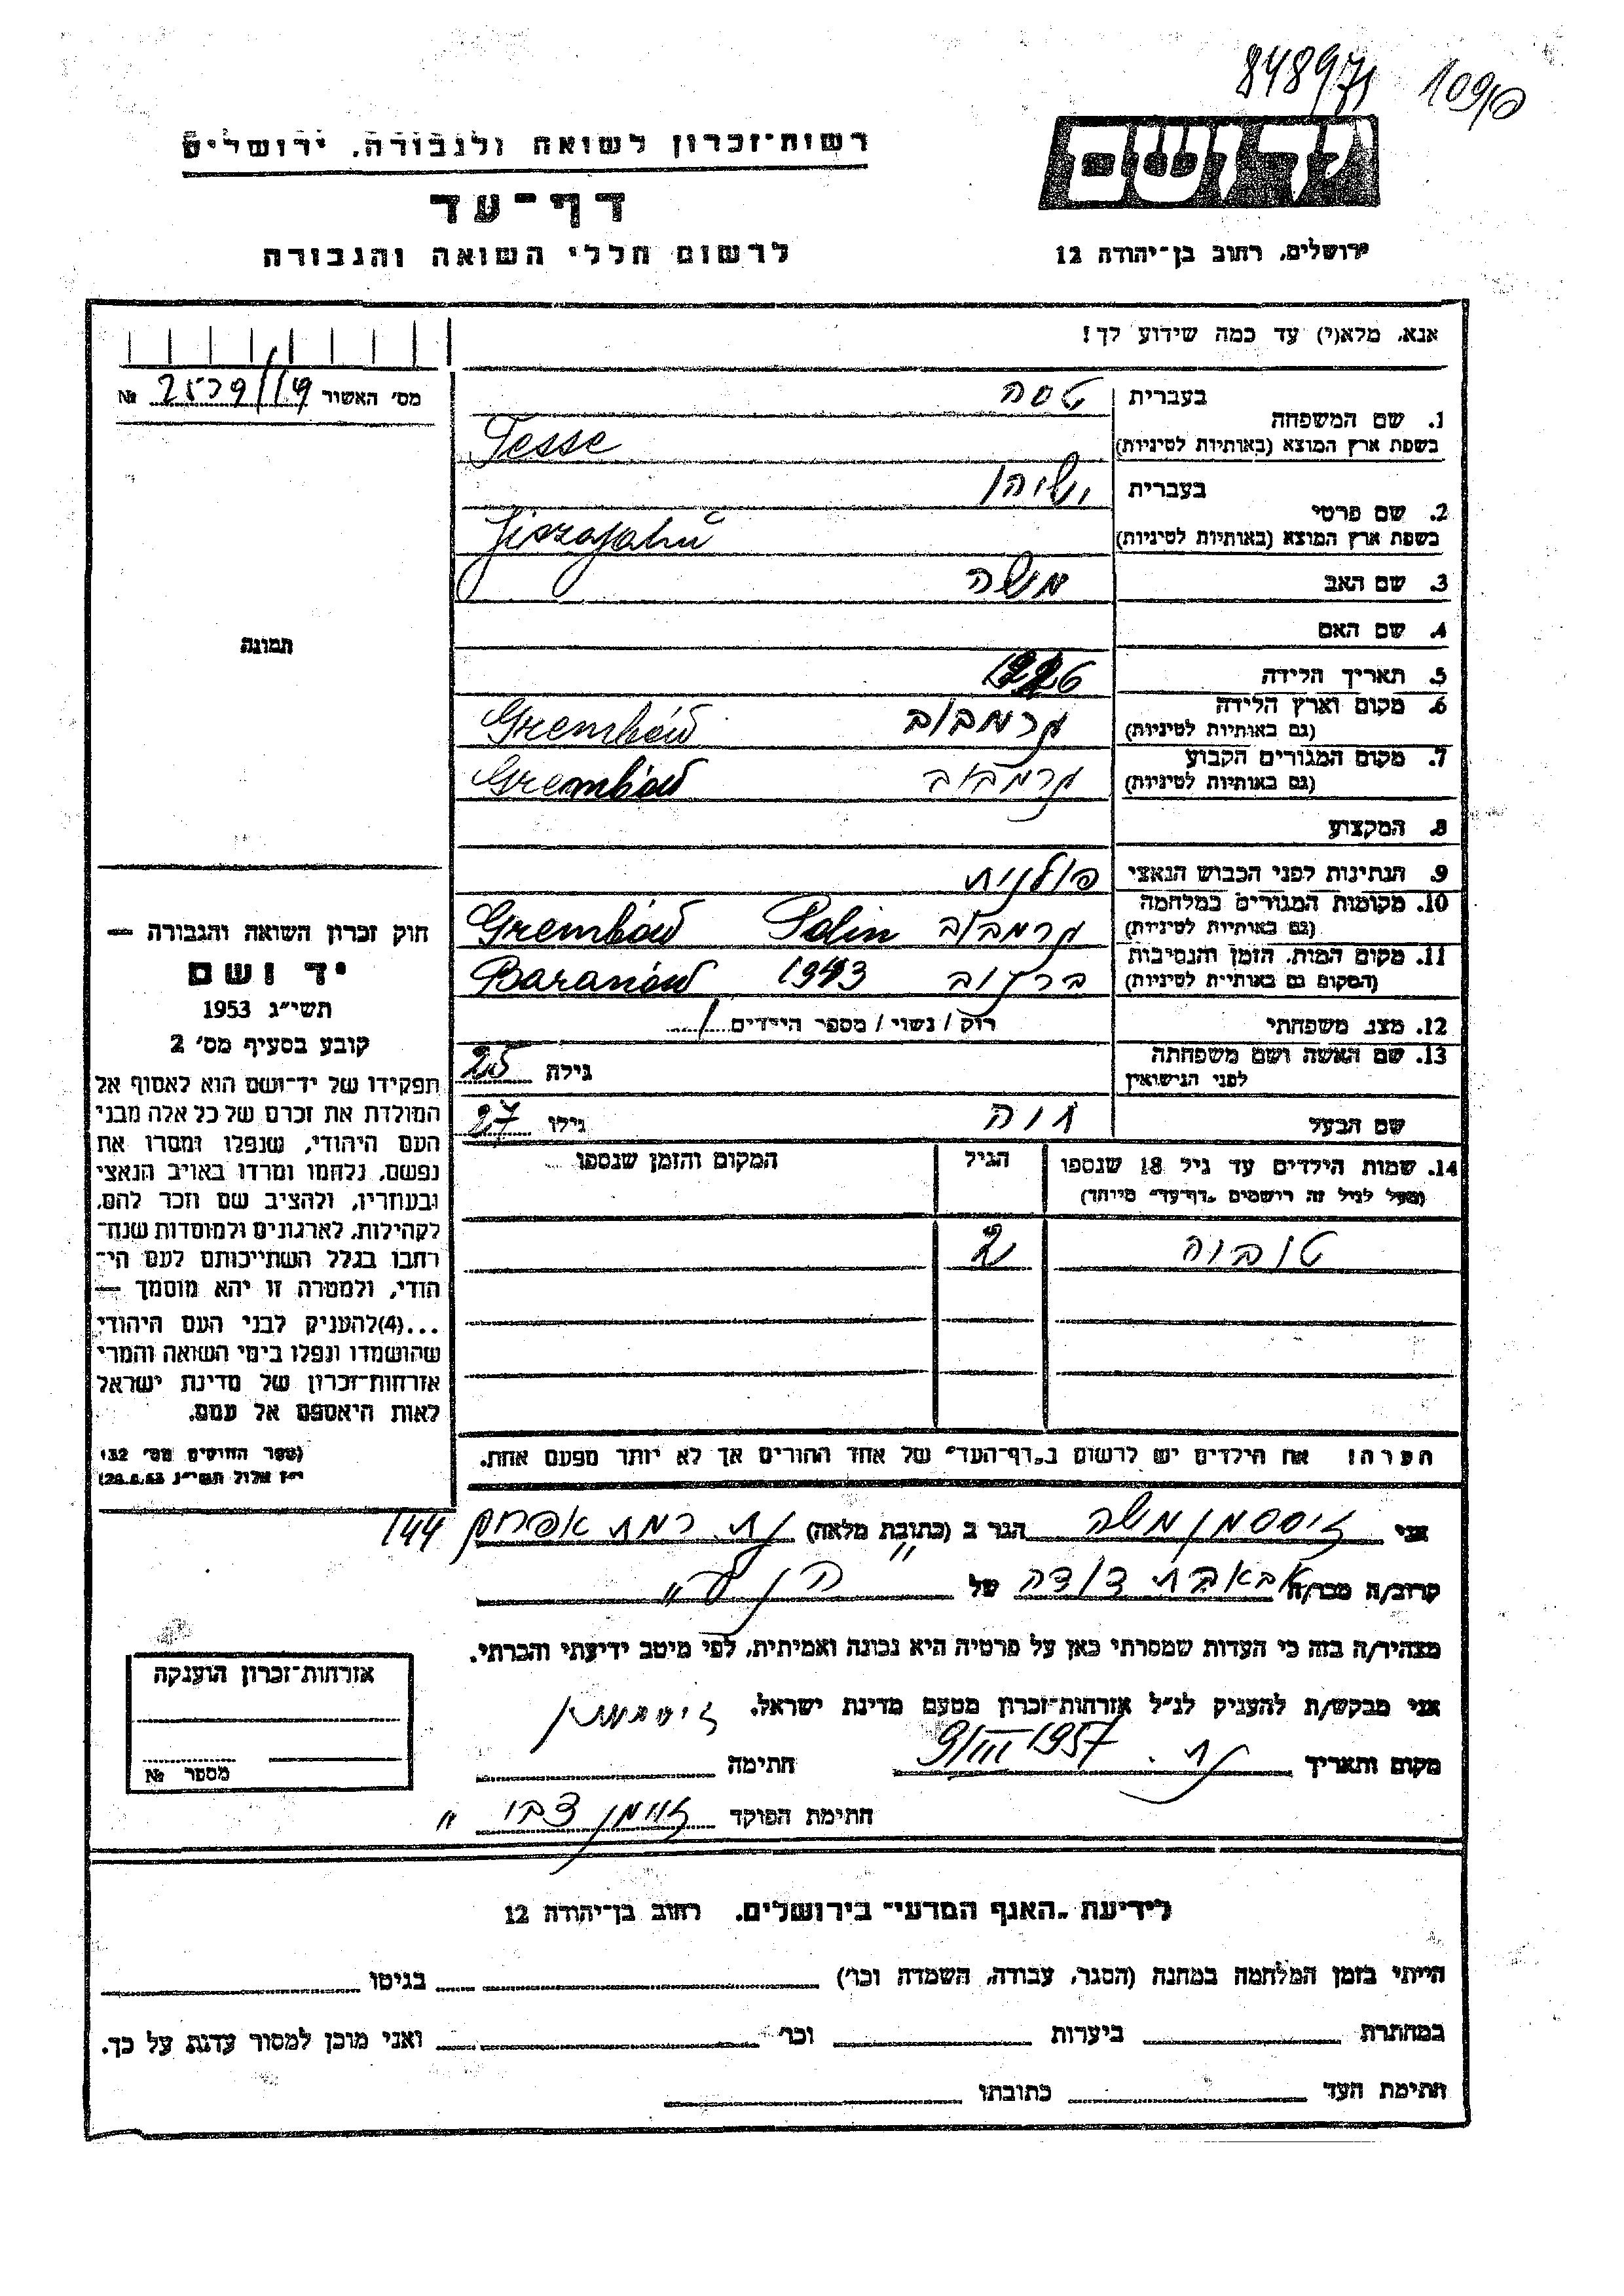 848971 109
רשות-זכרון לשואה ולגבורה, ירושלים
יד ושם
דף-עד
לרשום חללי השואה והגבורה
ירושלים, רחוב בן-יהודה 12
אנא, מלא(י) עד כמה שידוע לך!
מס' האשור 2539/19 №
1. שם המשפחה
בעברית טסה
בשפת ארץ המוצא (באותיות לטיניות) Tesse
2. שם פרטי
בעברית ישיהו
בשפת ארץ המוצא (באותיות לטיניות) Jiszajahu
3. שם האב משה
4. שם האם
5. תאריך הלידה
6. מקום וארץ הלידה גרמבוב Grembów
(גם באותיות לטיניות)
7. מקום המגורים הקבוע גרמבוב Grembów
(גם באותיות לטיניות)
8. המקצוע
9. הנתינות לפני הכבוש הנאצי פולנית
10. מקומות המגורים במלחמה גרמבוב Polin Grembów
(גם באותיות לטיניות)
11. מקום המות, הזמן והנסיבות ברנוב 1943 Baranów
(המקום גם באותיות לטיניות)
12. מצב משפחתי רווק / נשוי / מספר הילדים 1
13. שם האשה ושם משפחתה
לפני הנישואין גילה 25
שם הבעל חוה גילו 27
14. שמות הילדים עד גיל 18 שנספו הגיל המקום והזמן שנספו
(מעל לגיל זה רושמים "דף-עד" מיוחד)
טובה 2
הערה: את הילדים יש לרשום ב"דף-העד" של אחד ההורים אך לא יותר מפעם אחת.
תמונה
חוק זכרון השואה והגבורה —
יד ושם
תשי"ג 1953
קובע בסעיף מס' 2
תפקידו של יד-ושם הוא לאסוף אל
המולדת את זכרם של כל אלה מבני
העם היהודי, שנפלו ומסרו את
נפשם, נלחמו ומרדו באויב הנאצי
ובעוזריו, ולהציב שם וזכר להם,
לקהילות, לארגונים ולמוסדות שנח-
רבו בגלל השתייכותם לעם הי-
הודי, ולמטרה זו יהא מוסמך —
...(4) להעניק לבני העם היהודי
שהושמדו ונפלו בימי השואה והמרי
אזרחות-זכרון של מדינת ישראל
לאות היאספם אל עמם.
(ספר החוקים מס' 132
י"ז אלול תשי"ג 28.8.53)
אני זיסמן משה הגר ב (כתובת מלאה) נת. רמת אפרים 144
קרוב/ה מכר/ה דודה של "הנ"ל"
מצהיר/ה בזה כי העדות שמסרתי כאן על פרטיה היא נכונה ואמיתית, לפי מיטב ידיעתי והכרתי.
אני מבקש/ת להעניק לנ"ל אזרחות-זכרון מטעם מדינת ישראל.
מקום ותאריך נת. 9/III 1957 חתימה זיסמן
חתימת הפוקד
אזרחות-זכרון הוענקה
מספר №
לידיעת "האגף המדעי" בירושלים, רחוב בן-יהודה 12
הייתי בזמן המלחמה במחנה (הסגר, עבודה, השמדה וכו') בגיטו
במחתרת ביערות וכו' ואני מוכן למסור עדות על כך.
חתימת העד כתובתו